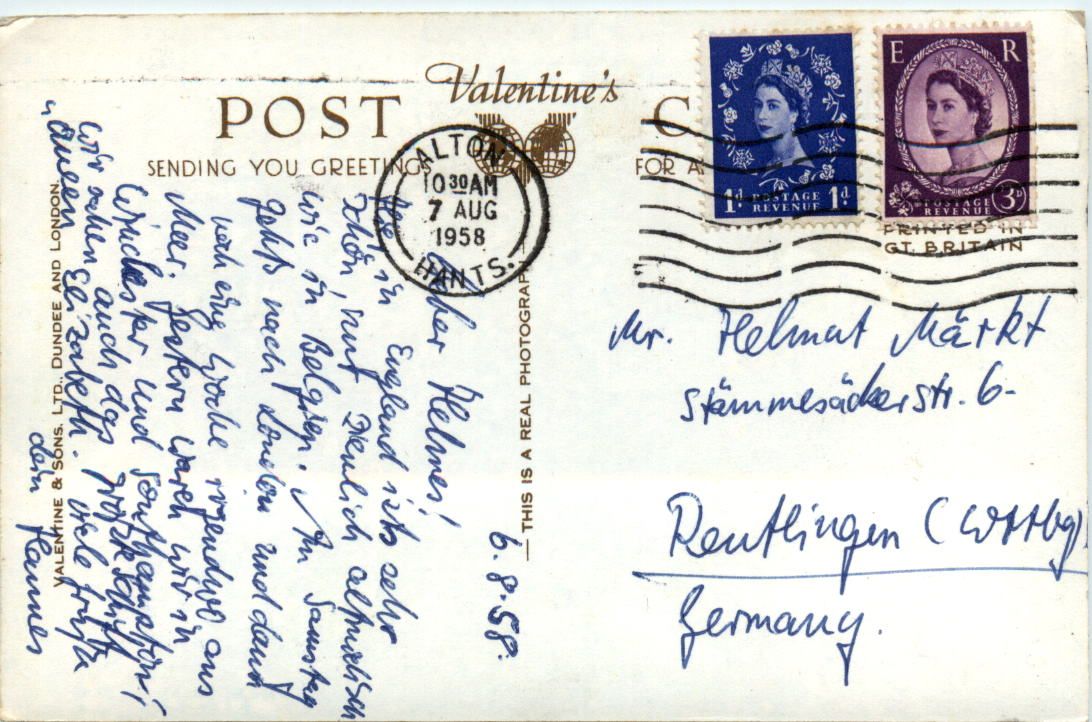 Valentine's
POST C
SENDING YOU GREETINGS FOR A
ALTON
10 30 AM
7 AUG
1958
HANTS.
1d POSTAGE REVENUE 1d
E R
POSTAGE REVENUE 3D
PRINTED IN
GT. BRITAIN
6.8.58.
Lieber
Hier in England ists sehr
schön, nur ziemlich altmodisch
wie in Belgien. Am Samstag
gehts nach London und dann
noch eine Woche irgendwo ans
Meer. Gestern waren wir in
Winchester und Southampton,
wir sahen auch das
„Queen Elizabeth". Viele Grüße
dein Hannes
VALENTINE & SONS. LTD., DUNDEE AND LONDON.
— THIS IS A REAL PHOTOGRAPH
Mr. Helmut Märkt
Stämmesäckerstr. 6-
Reutlingen (Wttbg)
Germany.